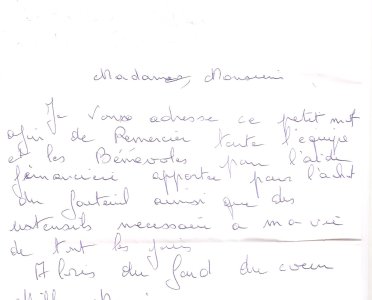 Madame, Monsieur
Je vous adresse ce petit mot
afin de Remercier toute l'équipe
et les Bénévoles pour l'aide
financière apportée pour l'achat
du fauteuil aussi que des
ustensils nécessaire a ma vie
de tout les jours
Alors du fond du coeur
Mille Merci